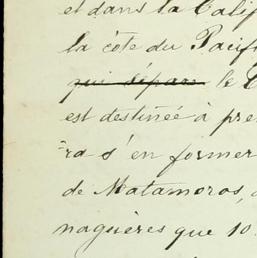 et dans la Calif
la côte du Pacif
qui sépare le
est destinée à pre
ra s'en former
de Matamoros,
naguères que 10